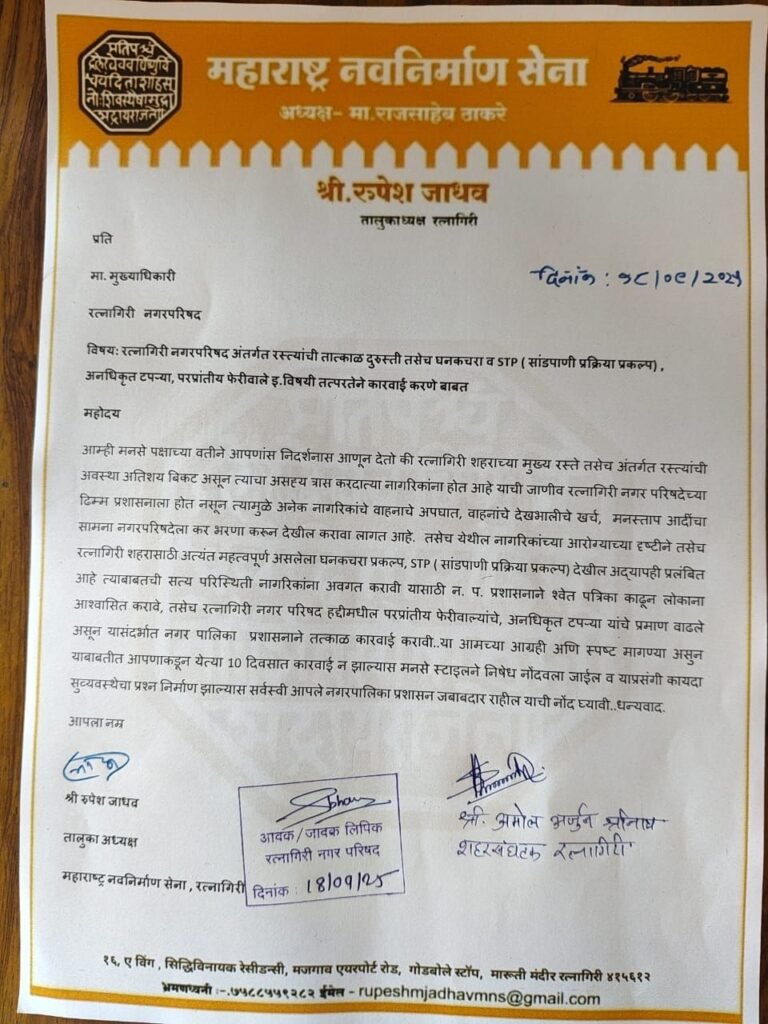 प्रतिपच्चं
द्रलेखेव वर्धिष्णुर्वि
श्ववंदिता शाहसू
नोः शिवस्यैषा मुद्रा
भद्राय राजते
महाराष्ट्र नवनिर्माण सेना
अध्यक्ष- मा.राजसाहेब ठाकरे
श्री.रुपेश जाधव
तालुकाध्यक्ष रत्नागिरी
प्रति
मा. मुख्याधिकारी
दिनांक : १८/०९/२०२५
रत्नागिरी नगरपरिषद
विषय: रत्नागिरी नगरपरिषद अंतर्गत रस्त्यांची तात्काळ दुरुस्ती तसेच घनकचरा व STP ( सांडपाणी प्रक्रिया प्रकल्प) ,
अनधिकृत टपऱ्या, परप्रांतीय फेरीवाले इ.विषयी तत्परतेने कारवाई करणे बाबत
महोदय
आम्ही मनसे पक्षाच्या वतीने आपणांस निदर्शनास आणून देतो की रत्नागिरी शहराच्या मुख्य रस्ते तसेच अंतर्गत रस्त्यांची
अवस्था अतिशय बिकट असून त्याचा असह्य त्रास करदात्या नागरिकांना होत आहे याची जाणीव रत्नागिरी नगर परिषदेच्या
ढिम्म प्रशासनाला होत नसून त्यामुळे अनेक नागरिकांचे वाहनाचे अपघात, वाहनांचे देखभालीचे खर्च, मनस्ताप आदींचा
सामना नगरपरिषदेला कर भरणा करून देखील करावा लागत आहे. तसेच येथील नागरिकांच्या आरोग्याच्या दृष्टीने तसेच
रत्नागिरी शहरासाठी अत्यंत महत्वपूर्ण असलेला घनकचरा प्रकल्प, STP ( सांडपाणी प्रक्रिया प्रकल्प) देखील अद्यापही प्रलंबित
आहे त्याबाबतची सत्य परिस्थिती नागरिकांना अवगत करावी यासाठी न. प. प्रशासनाने श्वेत पत्रिका काढून लोकाना
आश्वासित करावे, तसेच रत्नागिरी नगर परिषद हद्दीमधील परप्रांतीय फेरीवाल्यांचे, अनधिकृत टपऱ्या यांचे प्रमाण वाढले
असून यासंदर्भात नगर पालिका प्रशासनाने तत्काळ कारवाई करावी..या आमच्या आग्रही आणि स्पष्ट मागण्या असुन
याबाबतीत आपणाकडून येत्या 10 दिवसात कारवाई न झाल्यास मनसे स्टाइलने निषेध नोंदवला जाईल व याप्रसंगी कायदा
सुव्यवस्थेचा प्रश्न निर्माण झाल्यास सर्वस्वी आपले नगरपालिका प्रशासन जबाबदार राहील याची नोंद घ्यावी..धन्यवाद.
आपला नम्र
श्री रुपेश जाधव
तालुका अध्यक्ष
महाराष्ट्र नवनिर्माण सेना , रत्नागिरी
आवक/जावक लिपिक
रत्नागिरी नगर परिषद
दिनांक : 18/09/25
श्री. अमोल अर्जुन श्रीनाथ
शहरसंघटक रत्नागिरी
१६, ए विंग , सिद्धिविनायक रेसीडन्सी, मजगाव एयरपोर्ट रोड, गोडबोले स्टॉप, मारूती मंदीर रत्नागिरी ४१५६१२
भ्रमणध्वनी :-.७५८८५५९२८२ ईमेल - rupeshmjadhavmns@gmail.com